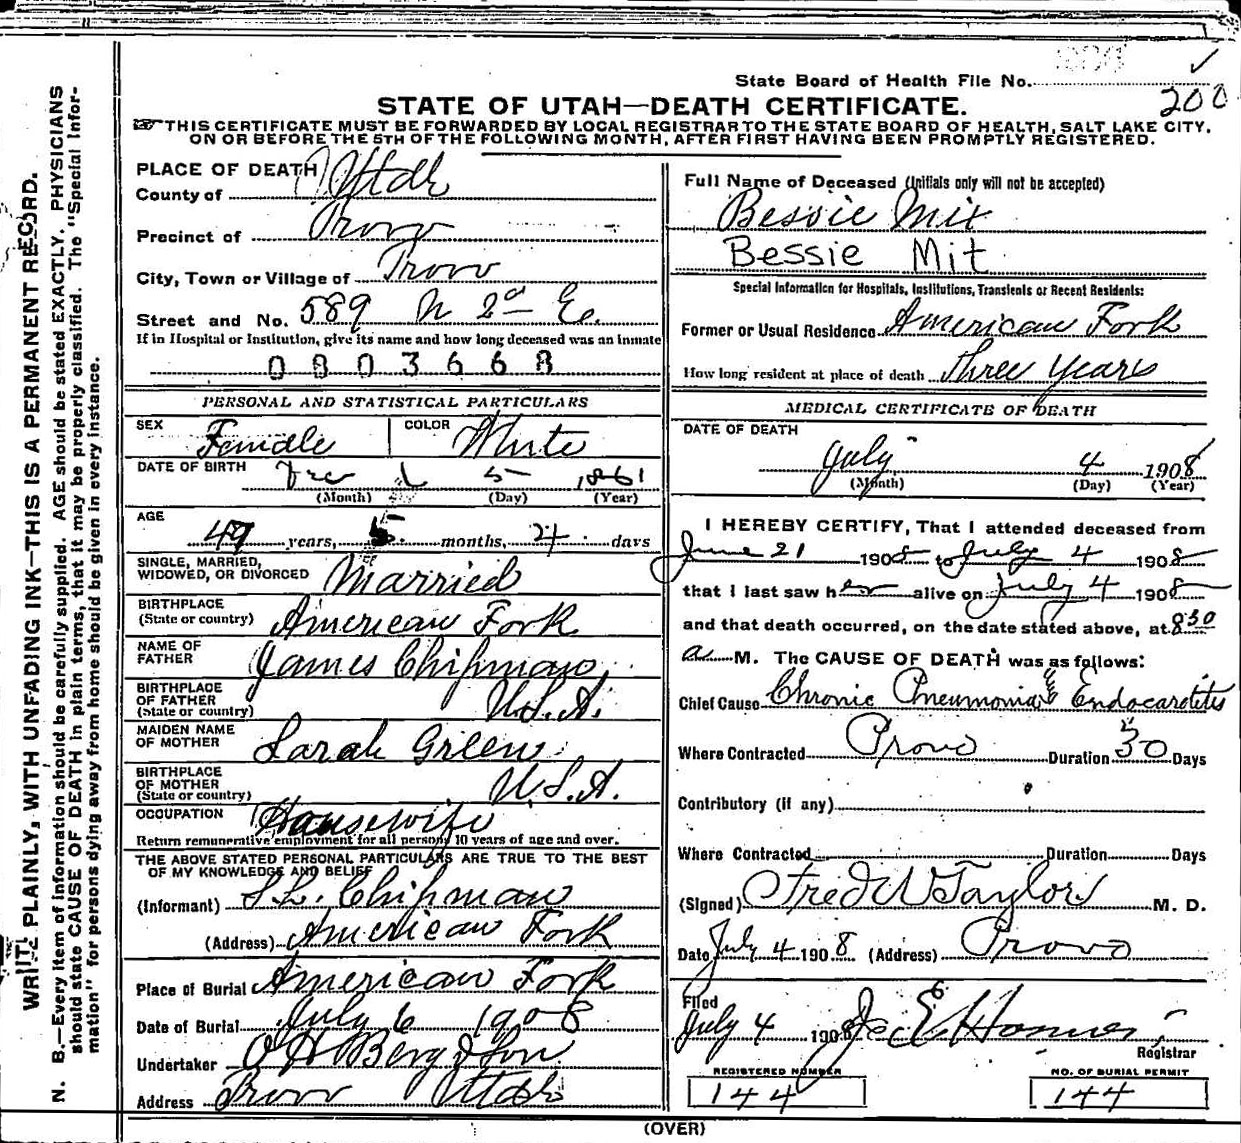 State Board of Health File No.
200
STATE OF UTAH—DEATH CERTIFICATE.
THIS CERTIFICATE MUST BE FORWARDED BY LOCAL REGISTRAR TO THE STATE BOARD OF HEALTH, SALT LAKE CITY,
ON OR BEFORE THE 5TH OF THE FOLLOWING MONTH, AFTER FIRST HAVING BEEN PROMPTLY REGISTERED.
WRITE PLAINLY, WITH UNFADING INK—THIS IS A PERMANENT RECORD.
N. B.—Every item of information should be carefully supplied. AGE should be stated EXACTLY. PHYSICIANS
should state CAUSE OF DEATH in plain terms, that it may be properly classified. The "Special Infor-
mation" for persons dying away from home should be given in every instance.
PLACE OF DEATH
County of Utah
Precinct of Provo
City, Town or Village of Provo
Street and No. 589 N 2nd Ea.
If in Hospital or Institution, give its name and how long deceased was an inmate
0803668
PERSONAL AND STATISTICAL PARTICULARS
SEX Female COLOR White
DATE OF BIRTH Dec 5 1861
(Month) (Day) (Year)
AGE
49 years, 5 months, 24 days
SINGLE, MARRIED,
WIDOWED, OR DIVORCED Married
BIRTHPLACE
(State or country) American Fork
NAME OF
FATHER James Chipman
BIRTHPLACE
OF FATHER
(State or country) U.S.A.
MAIDEN NAME
OF MOTHER Sarah Green
BIRTHPLACE
OF MOTHER
(State or country) U.S.A.
OCCUPATION Housewife
Return remunerative employment for all persons 10 years of age and over.
THE ABOVE STATED PERSONAL PARTICULARS ARE TRUE TO THE BEST
OF MY KNOWLEDGE AND BELIEF
(Informant) S.L. Chipman
(Address) American Fork
Place of Burial American Fork
Date of Burial July 6 1908
Undertaker O H Berg & Son
Address Provo Utah
Full Name of Deceased (Initials only will not be accepted)
Bessie Mix
Bessie Mit
Special Information for Hospitals, Institutions, Transients or Recent Residents:
Former or Usual Residence American Fork
How long resident at place of death Three Years
MEDICAL CERTIFICATE OF DEATH
DATE OF DEATH
July 4 1908
(Month) (Day) (Year)
I HEREBY CERTIFY, That I attended deceased from
June 21 1908 to July 4 1908
that I last saw her alive on July 4 1908
and that death occurred, on the date stated above, at 830
a M. The CAUSE OF DEATH was as follows:
Chief Cause Chronic Pneumonia & Endocarditis
Where Contracted Provo Duration 30 Days
Contributory (if any)
Where Contracted Duration Days
(Signed) Fred W Taylor M. D.
Date July 4 1908 (Address) Provo
Filed
July 4 1908
Registrar
REGISTERED NUMBER NO. OF BURIAL PERMIT
144 144
(OVER)